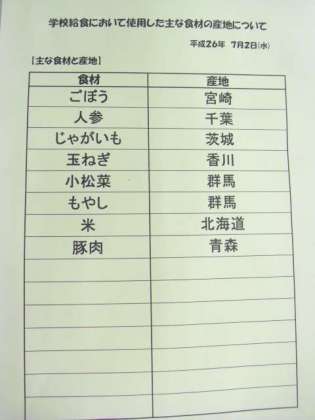 学校給食において使用した主な食材の産地について
平成26年 7月2日(水)
【主な食材と産地】
食材 産地
ごぼう 宮崎
人参 千葉
じゃがいも 茨城
玉ねぎ 香川
小松菜 群馬
もやし 群馬
米 北海道
豚肉 青森